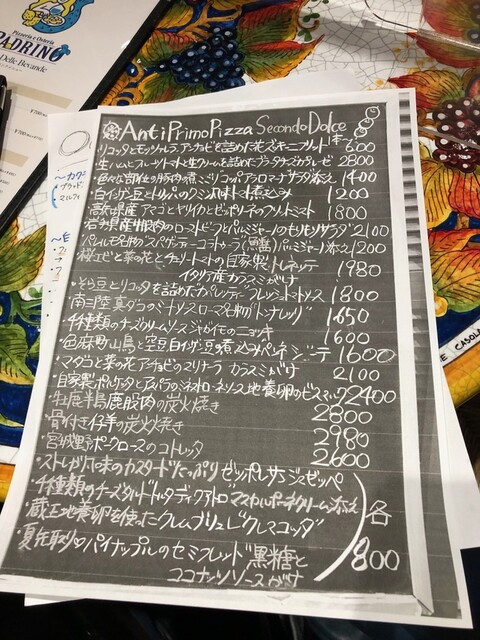 Pizzeria e Osteria
PADRINO
Delle Bevande
¥700
AntiPrimoPizza SecondoDolce
・リコッタとモッツァレラ、アンチョビを詰めた花ズッキーニフリット 1本 600
・生ハムとフルーツトマトと生クリームを詰めたブッラータチーズカプレーゼ 2800
1400
・白イゲン豆とトリッパのクミン風味トマト煮込み 1200
・高知県産 アマゴとヤリイカとゼッポリーネのフリットミスト 1800
2100
1200
・桜エビと菜の花とチェリートマトの自家製トレネッテ
イタリア産カラスミがけ 1980
・そら豆とリコッタを詰めたカペレッティ フレッシュトマトソース 1800
・南三陸 真ダコのミートソース ローマ風 1650
・4種類のチーズクリームソース ジャガイモのニョッキ 1600
1600
・マダコと菜の花 アンチョビのマリナーラ カラスミがけ 2100
・自家製ポルケッタとアスパラのジェノベーゼソース 地養卵のビスマルク 2400
・牡鹿半島鹿股肉の炭火焼き 2800
・骨付き仔羊の炭火焼き 2980
・宮城野ポークロースのコトレッタ 2600
・ストレガ風味のカスタードたっぷり ゼッポレ サンジュゼッペ
・4種類のチーズタルト トルタディクアトロ マスカルポーネクリーム添え
・蔵王地養卵を使ったクレムブリュレ"クレマコッタ"
・夏先取り♡パイナップルのセミフレッド 黒糖と
ココナッツソースがけ
各
800